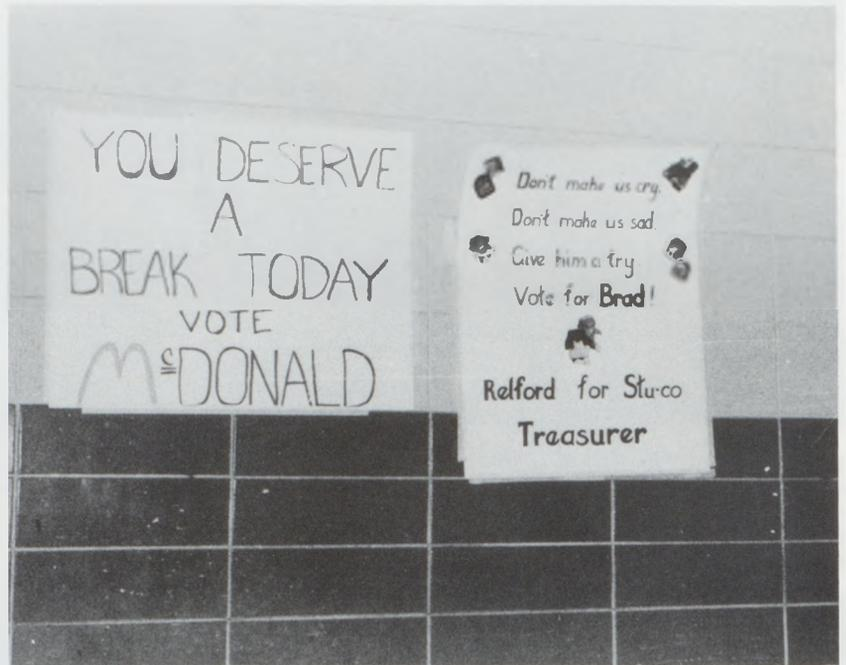 YOU DESERVE
A
BREAK TODAY
VOTE
McDONALD
Don't make us cry.
Don't make us sad.
Give him a try
Vote for Brad!
Relford for Stu-co
Treasurer